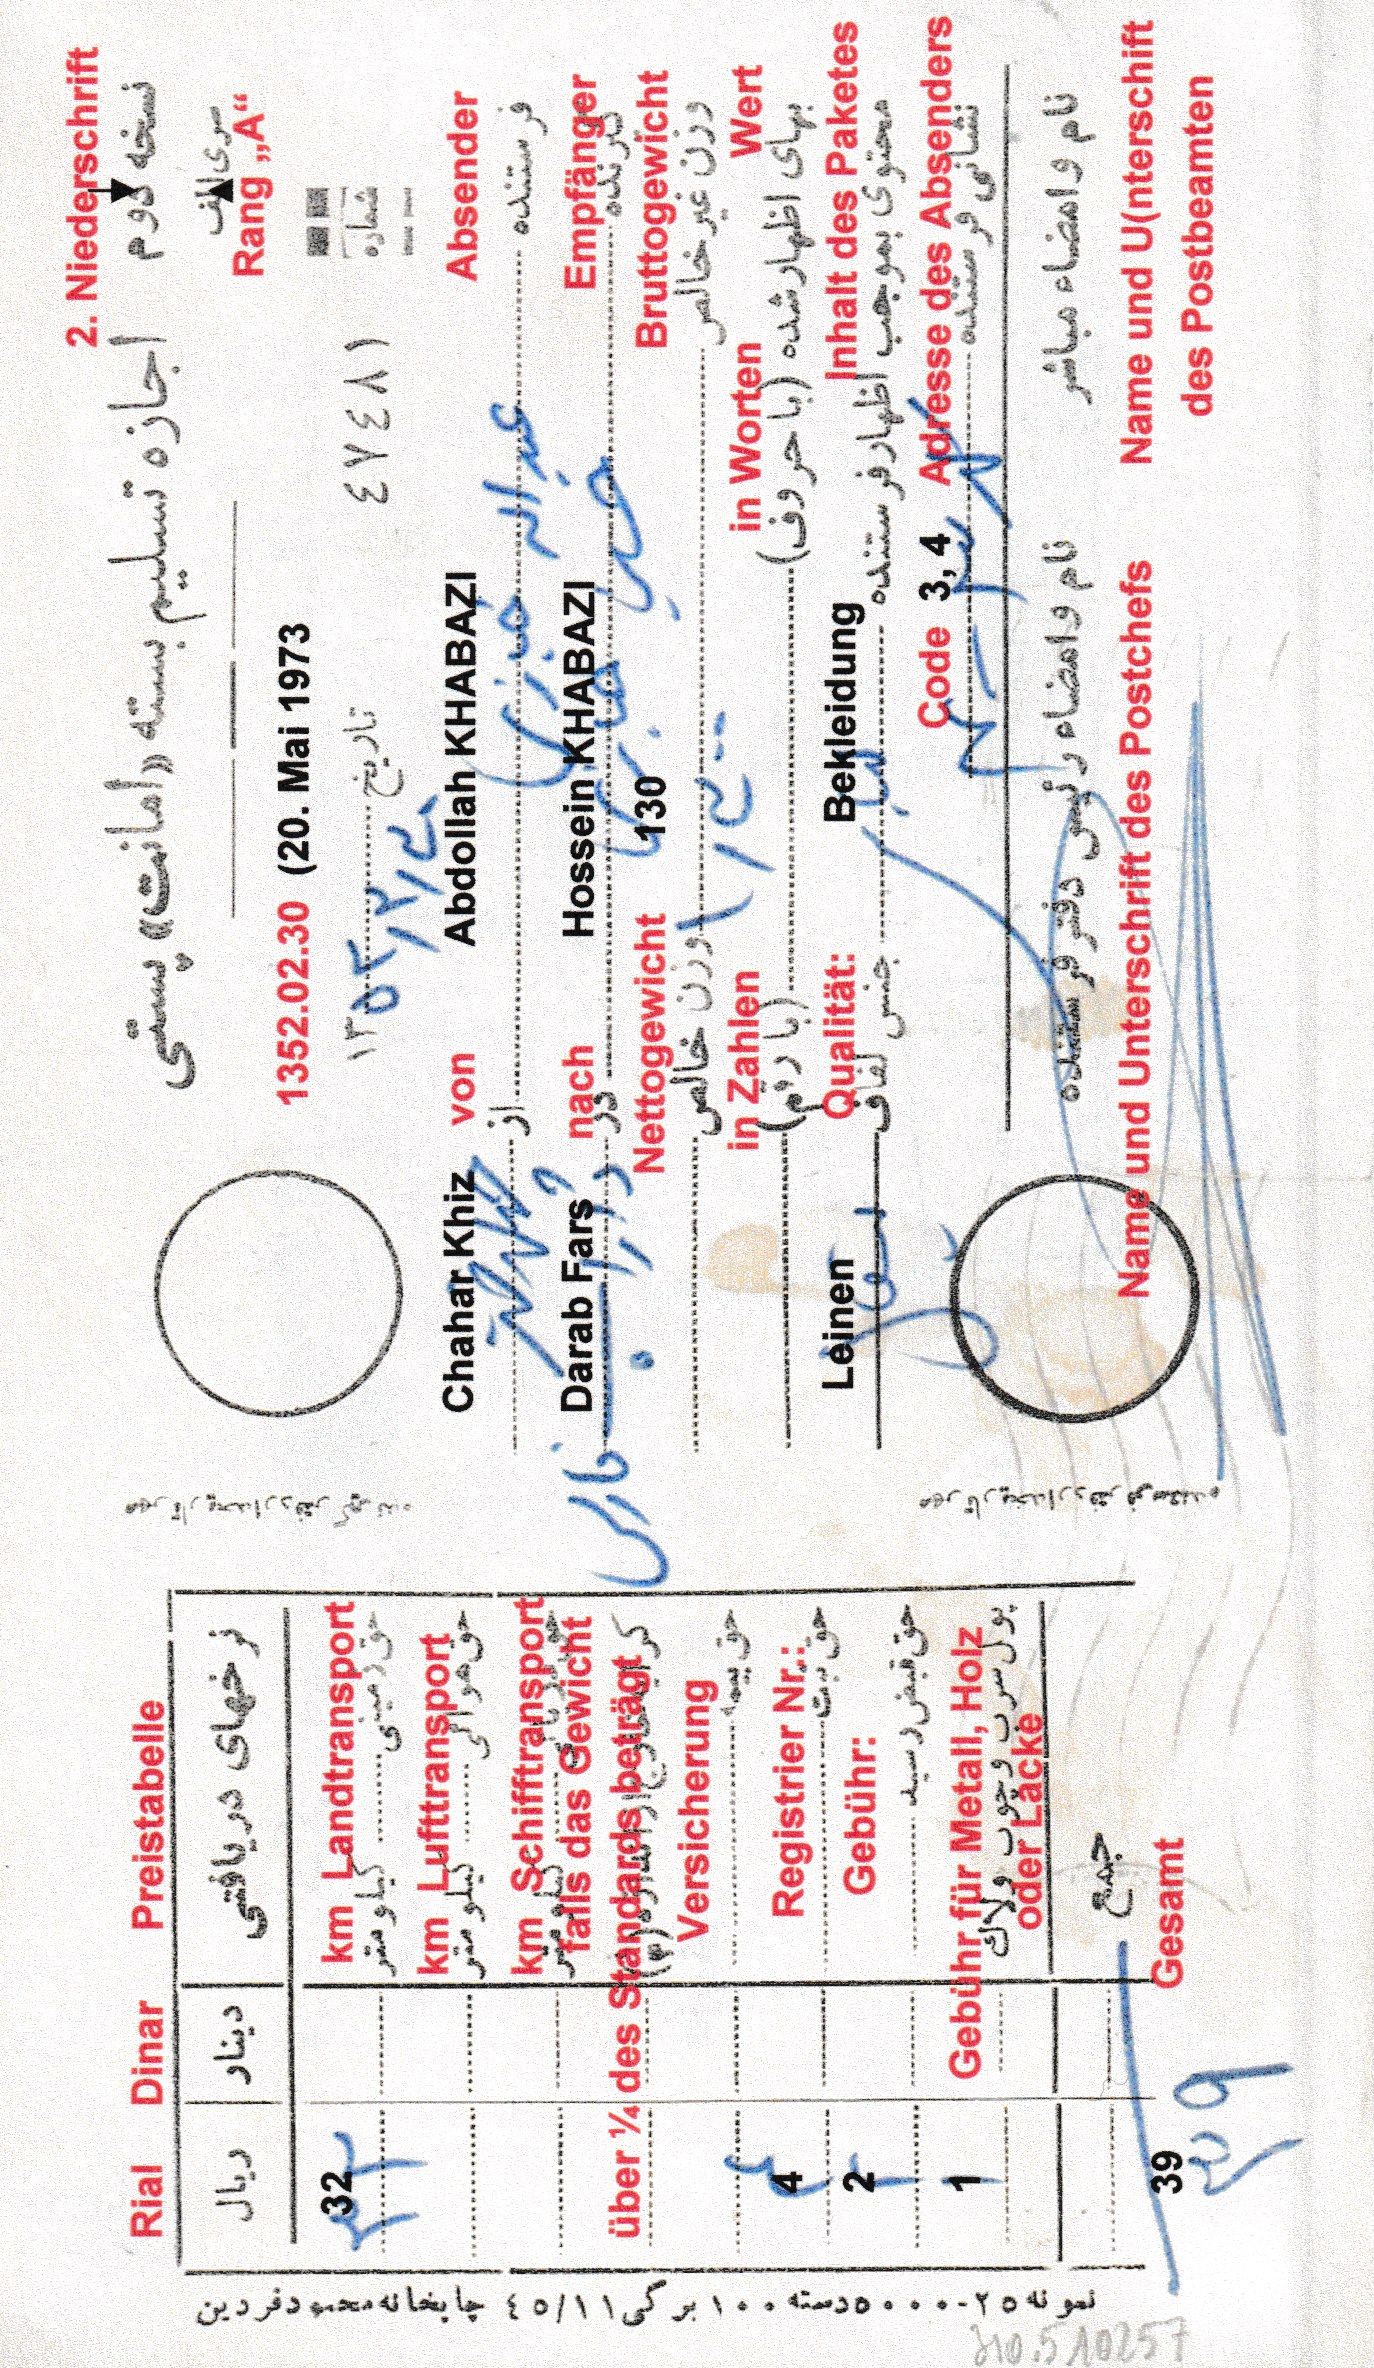 2. Niederschrift
اجازه تسلیم بسته «امانت» پستی
نسخه دوم
سری الف
Rang „A“
1352.02.30 (20. Mai 1973
شماره
٤٧٤٨١
تاریخ
١٣٥٢/٢/٣٠
Absender
Abdollah KHABAZI
von
Chahar Khiz
فرستنده
عبداله خبازی
از
Empfänger
Hossein KHABAZI
nach
Darab Fars
گیرنده
حسین خبازی
در
داراب فارس
Bruttogewicht
130
Nettogewicht
وزن غیر خالص
وزن خالص
Wert
in Worten
in Zahlen
بهای اظهار شده (با حروف)
(با رقم)
Inhalt des Paketes
Bekleidung
Qualität:
Leinen
محتوی بموجب اظهار فرستنده
جنس لفاف
Adresse des Absenders
Code 3, 4
نشانی فرستنده
نام و امضاء مباشر
نام و امضاء رئیس دفتر فرستنده
Name und U(nterschift
des Postbeamten
Name und Unterschrift des Postchefs
مهر تاریخدار دفتر گیرنده
مهر تاریخدار دفتر فرستنده
Preistabelle
Dinar
Rial
نرخهای دریافتی
دینار
ریال
km Landtransport
32
کیلومتر
حق زمینی
٣٢
km Lufttransport
کیلومتر
حق هوائی
km Schifftransport
کیلومتر
falls das Gewicht
über ¼ des Standards beträgt
Versicherung
حق بیمه
Registrier Nr.:
4
حق ثبت
Gebühr:
2
حق قبض رسید
Gebühr für Metall, Holz
oder Lacke
1
پول سرب و چوب و لاک
جمع
Gesamt
39
٣٩
نمونه ٢٥-٥٠٠٠ دسته ١٠٠ برگی ٤٥/١١ چاپخانه محمود فردین
210.510257